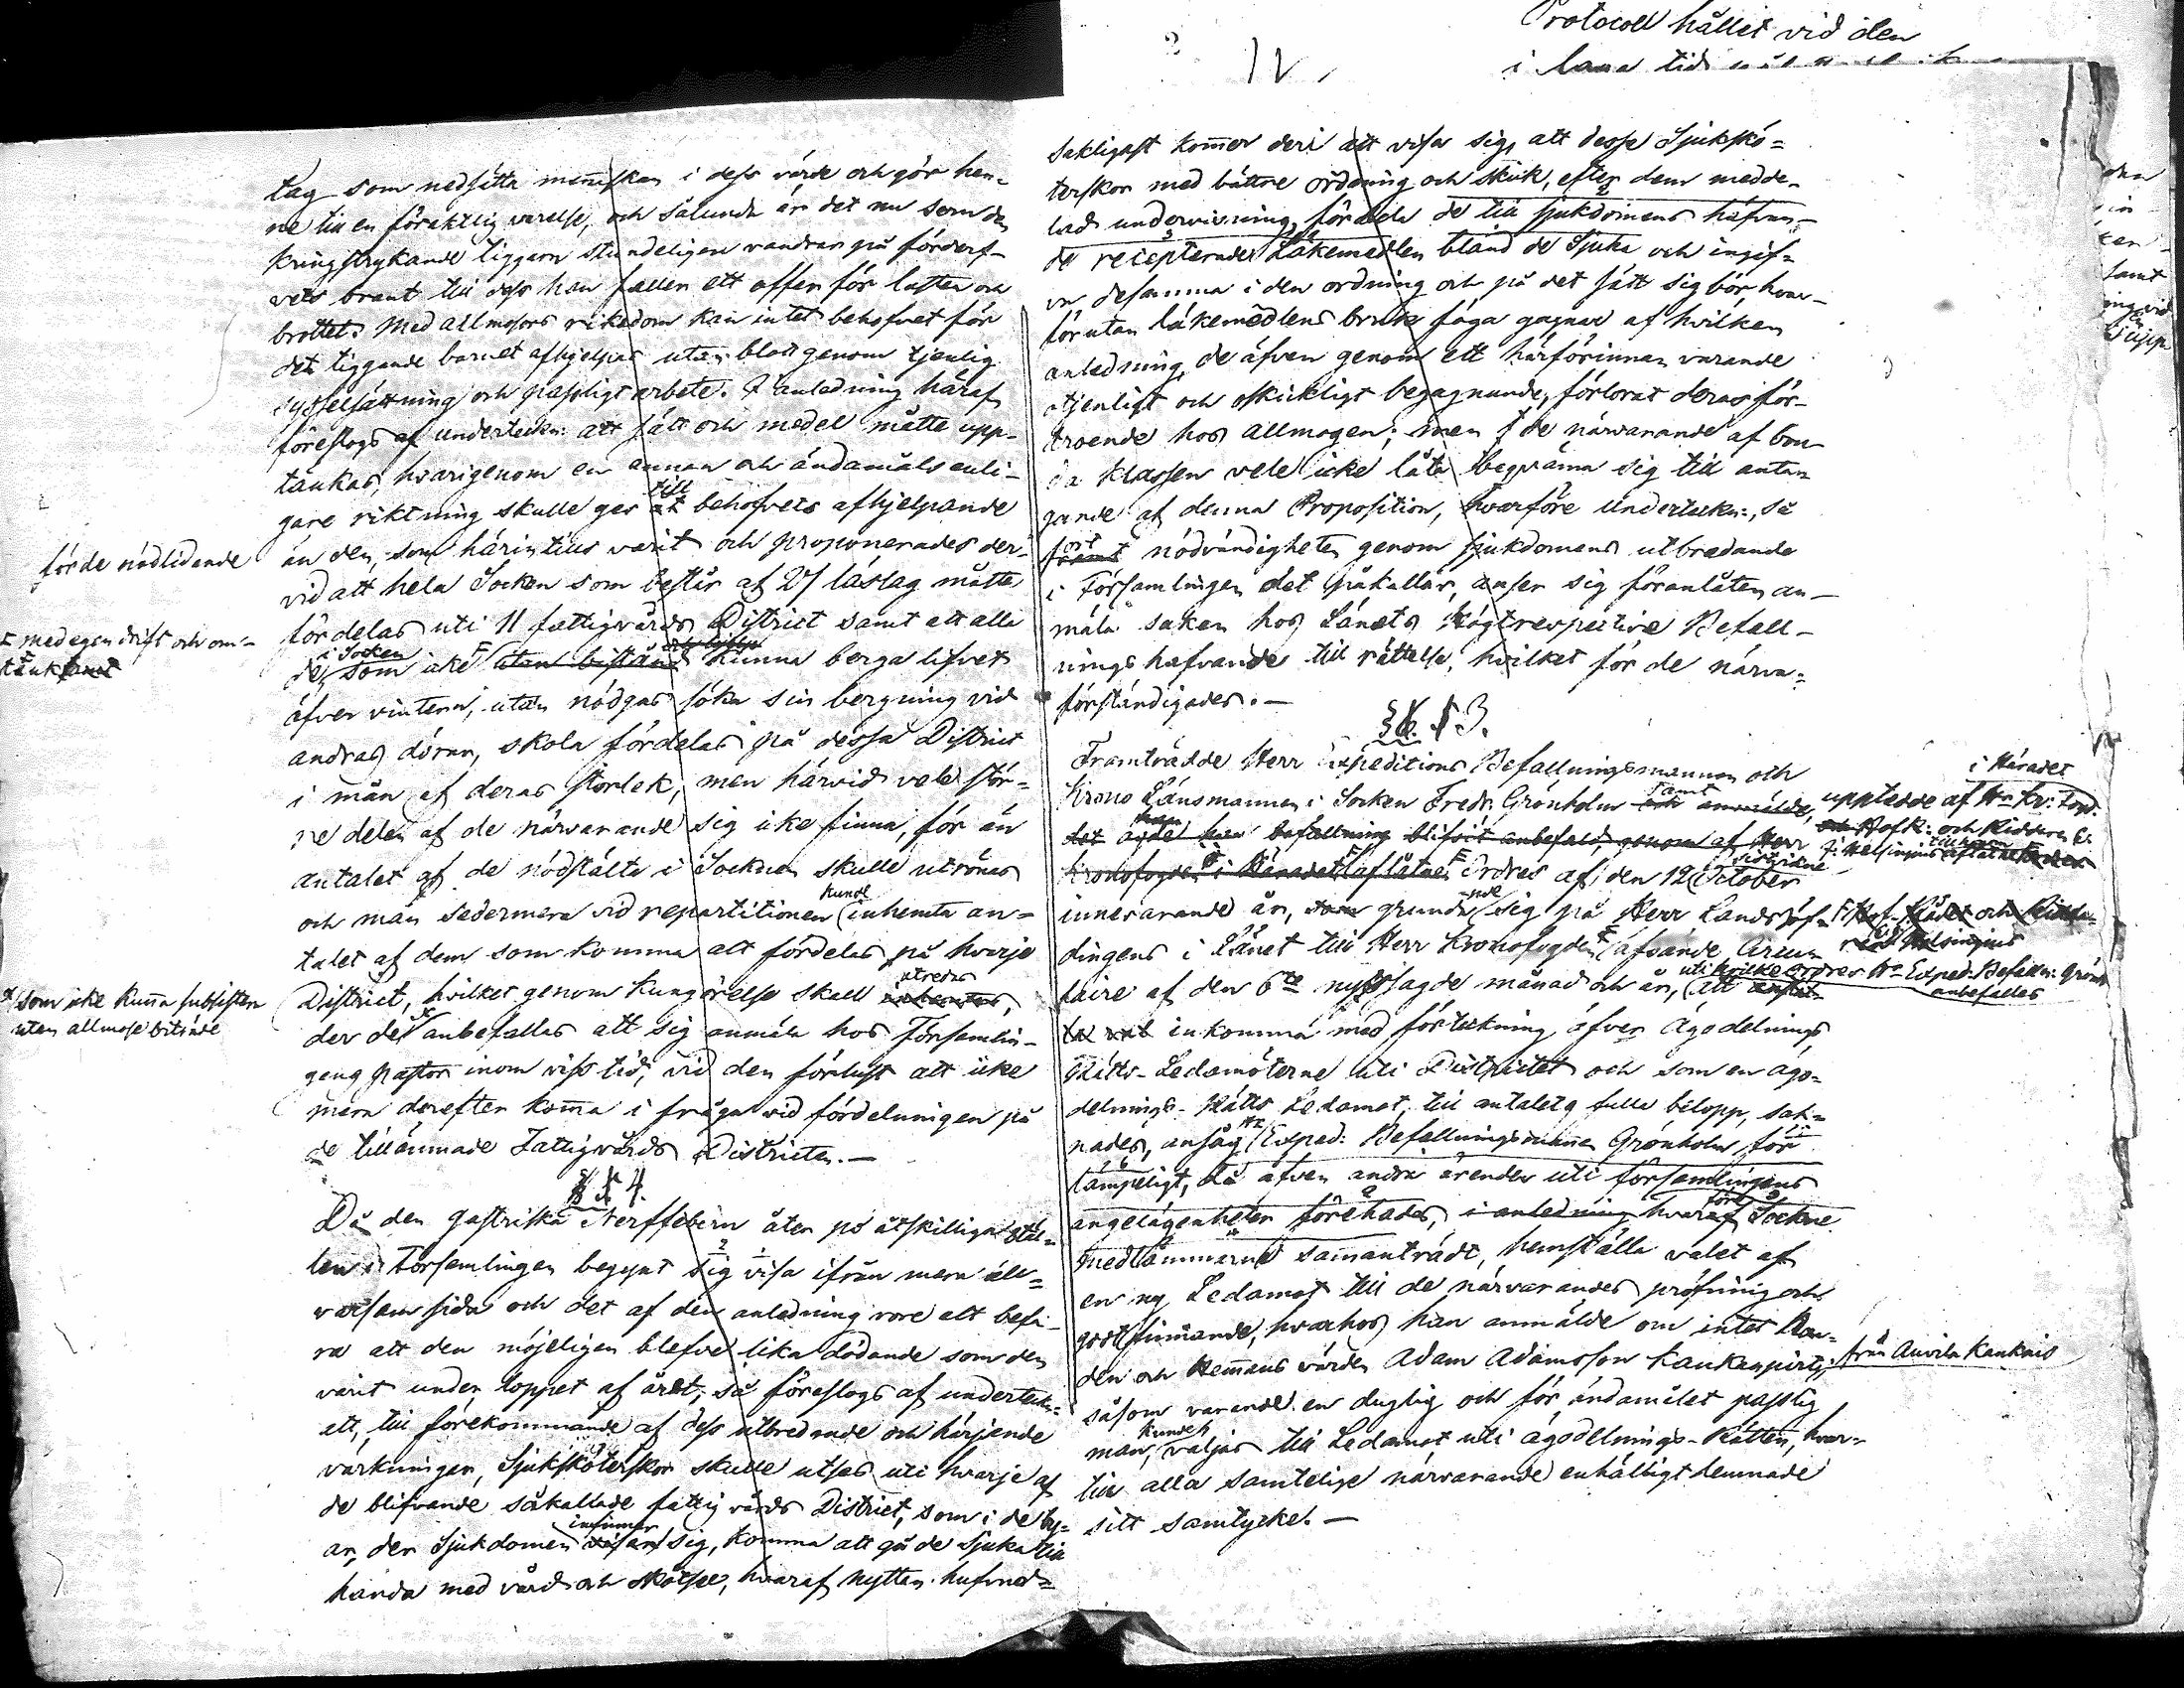 tag som nedsätta menniskan i dess värde och gör hen-
ne till en föraktlig varelse, och sålunda är det nu som den
kringstrykande tiggaren stundeligen vandrar på förderf-
vets brant till dess han faller ett offer för lasten och
brottet. Med allmosors rikedom kan intet behofvet för
det tiggande barnet afhjelpas utan blott genom tjenlig
sysselsättning och passligt arbete. I anledning häraf
föreslogs af undertekn: att sätt och medel måtte upp-
tänkas, hvarigenom en annan och ändamåls enli-
till
gare riktning skulle ges åt behofvets afhjelpande
för de nödlidande
än den, som härintills varit och proponerades der-
vid att hela Socken som består af 21 läslag måtte
fördelas uti 11 fattigvårds District samt att alla
med egen drift och om-
tanke
i Socken
de, som icke utan bistånd kunna berga lifvet
öfver vintern, utan nödgas söka sin bergning vid
andras dörar, skola fördelas på dessa District
i mån af deras storlek, men härvid vele stör-
re delen af de närvarande sig icke finna, för än
antalet af de nödstälte i Socknen skulle utrönas
kunde
och man sedermera vid repartitionen inhemta an-
talet af dem som komma att fördelas på hvarje
utredas
District, hvilket genom kungörelse skall inhemtas,
som icke kunna subsistera
utan allmose biträde
der de anbefalles att sig anmäla hos Församlin-
gens Pastor inom viss tid, vid den förlust att icke
mera derefter komma i fråga vid fördelningen på
de tillämnade Fattigvårds Districten.—
§ 4.
Då den gastriska Nerffebern åter på åtskilliga stäl-
len i Församlingen begynt sig visa ifrån mera all-
varsam sida och det af den anledning vore att befa-
ra att den möjeligen blefve lika dödande som den
varit under loppet af året, så föreslogs af undertekn:
att, till förekommande af dess utbredande och härjande
verkningar, Sjuksköterskor skulle utses uti hvarje af
de blifvande såkallade fattigvårds District, som i de by-
infinner
ar, der Sjukdomen visar sig, komma att gå de sjuka till
handa med vård och skötsel, hvaraf nyttan hufvud-
Protocoll hållet vid den
i laga tid
IV.
sakligast kommer deri att visa sig, att desse Sjukskö-
terskor med bättre ordning och skick, efter dem medde-
lad undervisning, fördela de till sjukdomens häfvan-
de recepterade Läkemedlen bland de Sjuka och ingif-
va desamma i den ordning och på det sätt sig bör, hvar-
förutan läkemedlens bruk föga gagnar af hvilken
anledning, de äfven genom ett härförinnan varande
otjenligt och oskickligt begagnande, förlorat deras för-
troende hos allmogen; men de närvarande af bon-
da klassen vele icke låta beqväma sig till anta-
gande af denna Proposition, hvarföre undertekn:, så
fort
framt nödvändigheten genom sjukdomens utbredande
i Församlingen det påkallar, anser sig föranlåten an-
mäla saken hos Länets Högtrespective Befall-
ningshafvande till rättelse, hvilket för de närva-
förständigades.—
§ 3.
Framträdde Herr Expeditions Befallningsmannen och
i Häradet
samt
Krono Länsmannen i Socken Fredr. Grönholm och anmälde,
upptedde af Hr Kr: Fogd.
det ägde han befallning blifvit anbefald, genom af Herr
och HofR: och Riddaren
Kronofogden i Häradet aflåtne Ordres af den 12 October
innevarande år, som grundade sig på Herr Landshöf-
dingens i Länet till Herr Kronofogden afsände Circu-
laire af den 6te nyssagde månad och år, att
uti hvilke ordres Hr Exped: Befalln: Grönh
anbefalles
inkomma med förteckning öfver Ägodelnings
Rätts-Ledamöterne uti Districtet och som en ägo-
delnings-Rätts Ledamot, till antalets fulla belopp, sak-
nades, ansåg Hr Exped: Befallningsmannen Grönholm för
lämpeligt, då äfven andra ärenden uti församlingens
angelägenheter förehades, i anledning hvaraf Sockne
medlämmarne sammanträdt, hemställa valet af
en ny Ledamot till de närvarandes pröfning och
godtfinnande, hvarhos han anmälde om intet Bon-
den och Hemmans värden Adam Adamsson Kaukanpirtj,
från Auvila Kaukais
såsom varande en duglig och för ändamålet passlig
kunde
man, väljas till Ledamot uti ägodelnings-Rätten, hvar-
till alla samtelige närvarande enhälligt lemnade
sitt samtycke.—